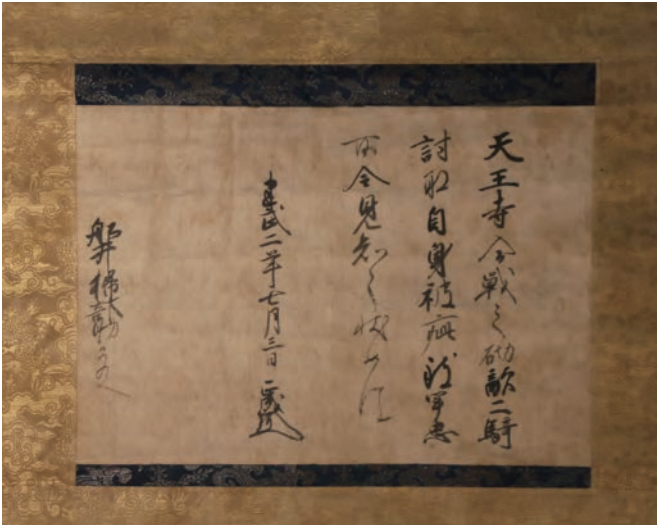 天王寺合戦之砌敵二騎
討取自身被疵致軍忠
所令見知之状如件
建武二年七月三日
舩井